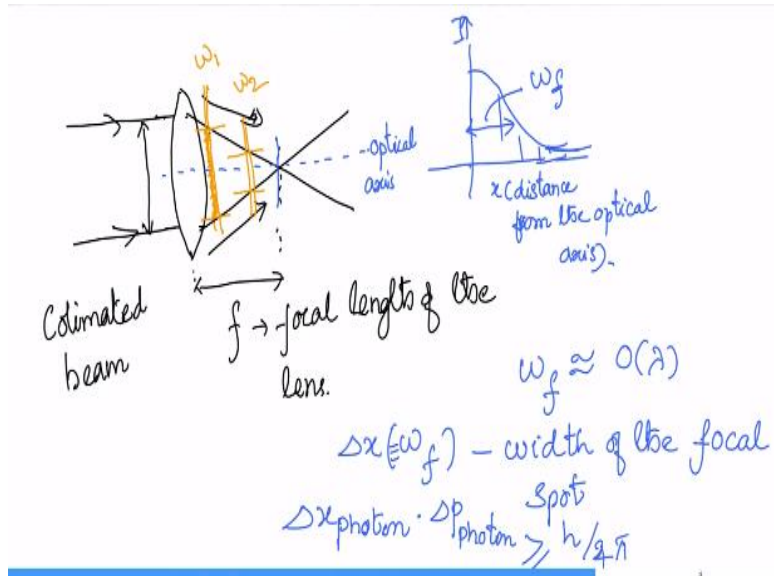 w₁
w₂
I
w_f
optical
axis
x(distance
from the optical
axis).
Colimated
beam
f → focal length of the
lens.
w_f ≈ O(λ)
Δx(≡w_f) – width of the focal
spot
Δx_photon · Δp_photon ≥ h/4π